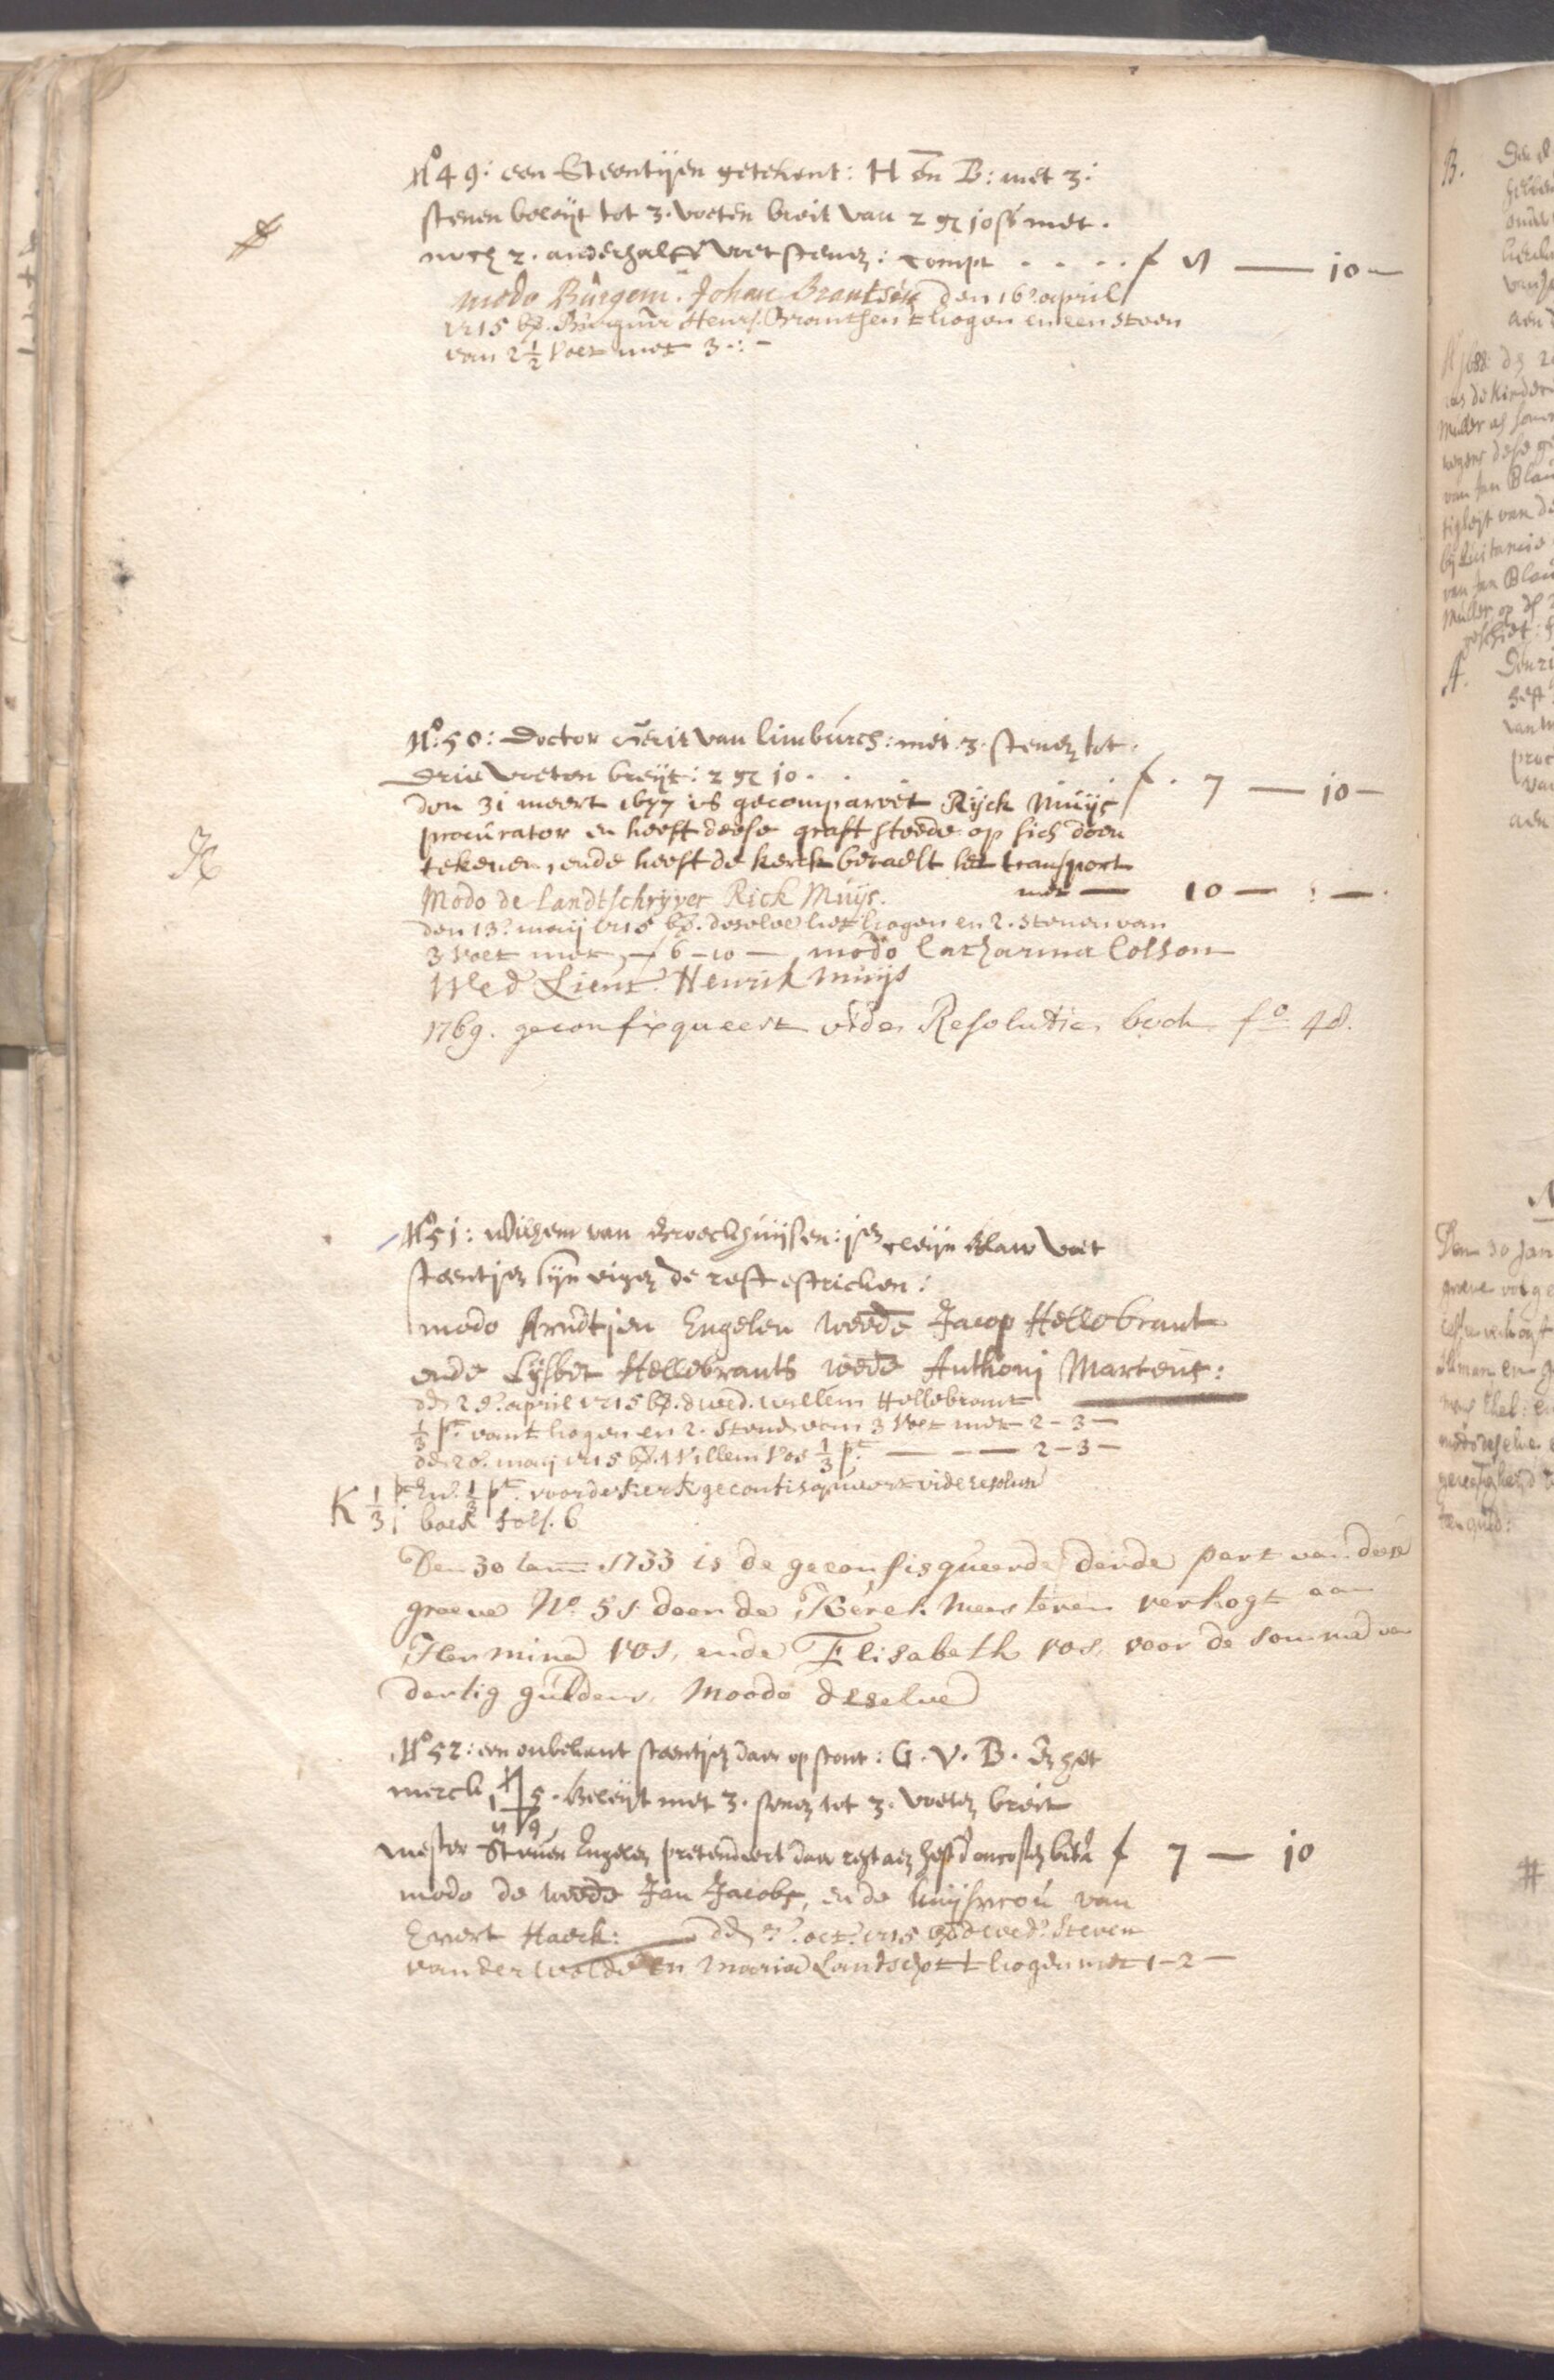 No 49: een Steentijen getekent: H en B: met 3:
stenen beleijt tot 3. voeten breit van 2 gl 10 st met.
noch 2. anderhalff voet stenen: compt . . . . f VI — 10 —
modo Burgem. Johan Brantsen den 16e april
1715 bet. Burgmr Henr. Brantsen t hogen en een steen
van 2 1/2 voet met 3 -:-
No: 50: Doctor Gerit van limburch: met 3. stenen tot
drie voeten breijt: 2 gl 10 . . . . f. 7 — 10 —
den 31 meert 1677 is gecompareert Rijck Muijs
procurator en heeft deese graft steede op sich doen
tekenen, ende heeft de kerck betaelt het transport
met — 10 — : —
Modo de Landtschrijver Rick Muijs.
den 13e maij 1715 bet. deselve het hogen en 2. stenen van
3 voet met — 6 - 10 — modo Catharina Colson
Wed Lieut. Henrik Muijs
1769. geconfisqueert vide Resolutie boek fo 48.
No 51: Wilhem van Broeckhuijsen: is cleijn blaw voet
steentjen sijn eigen de rest estricken:
modo Arndtjen Engelen weede Jacop Hellebrant
ende Lijsbet Hellebrants weede Anthonj Martens:
den 29e april 1715 bet. d wed. willem Hellebrant
1/3 pt. vant hogen en 2. stenen van 3 voet met 2 - 3 —
den 20. maij 1715 bet. Willem Vos 1/3 pt. — — — 2 - 3 —
K 1/3 pt En 1/3 pt. voor de kerk geconfisqueert vide resolutie
boek fol. 6
Den 30 Jann 1733 is de geconfisqueerde derde part van dese
groeve No. 51 door de Kerck Meesteren verkogt aan
Hermina vos, ende Elisabeth vos, voor de somma van
dertig guldens. Moodo deselve
No 52: een onbekent steentjen daer op stont: G. V. B. En het
merck 5. beleijt met 3. stenen tot 3. voeten breit
mester Steven Engelen pretendeert daer recht aen heft d oncosten bet. f 7 — 10
modo de weede Jan Jacobs, ende huijsvrou van
Evert Haeck: den 7. oct. 1715 bet de wed. Steven
vander wolde en Maria Lantschot t hogen met 1 - 2 —